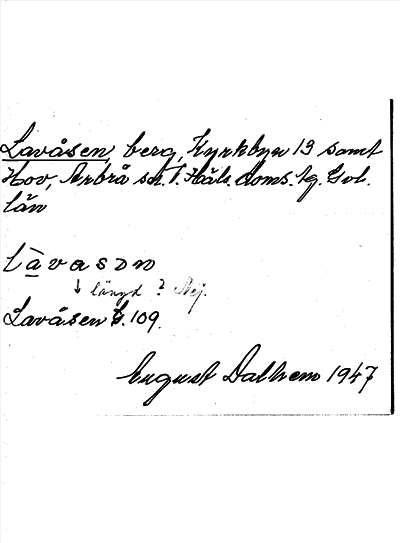 Lavåsen, berg, Kyrkbyn 13 samt
Hov, Arbrå sn. V. Häls. doms. tg. Gvl.
län
làvasɔn
↓ längd? Nej.
Lavåsen G. 109.
August Dalhem 1947